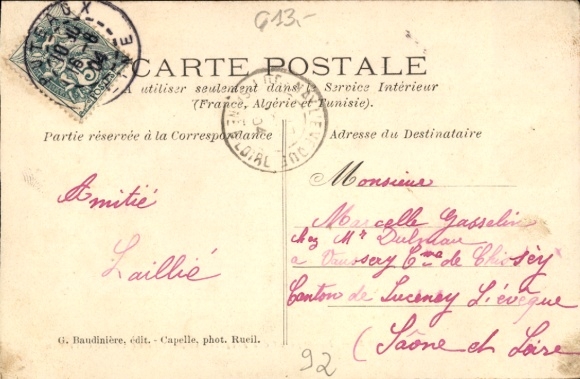 G13.-
PUTEAUX
SEINE
CARTE POSTALE
A utiliser seulement dans le Service Intérieur
(France, Algérie et Tunisie).
Partie réservée à la Correspondance
Adresse du Destinataire
Amitié
Laillié
Monsieur
Marcelle Gasselin
chez Mr Dulmau
a Vaussery Cme de Chissèy
Canton de Luceney L'évêque
(Saône et Loire
G. Baudinière, édit. - Capelle, phot. Rueil.
92